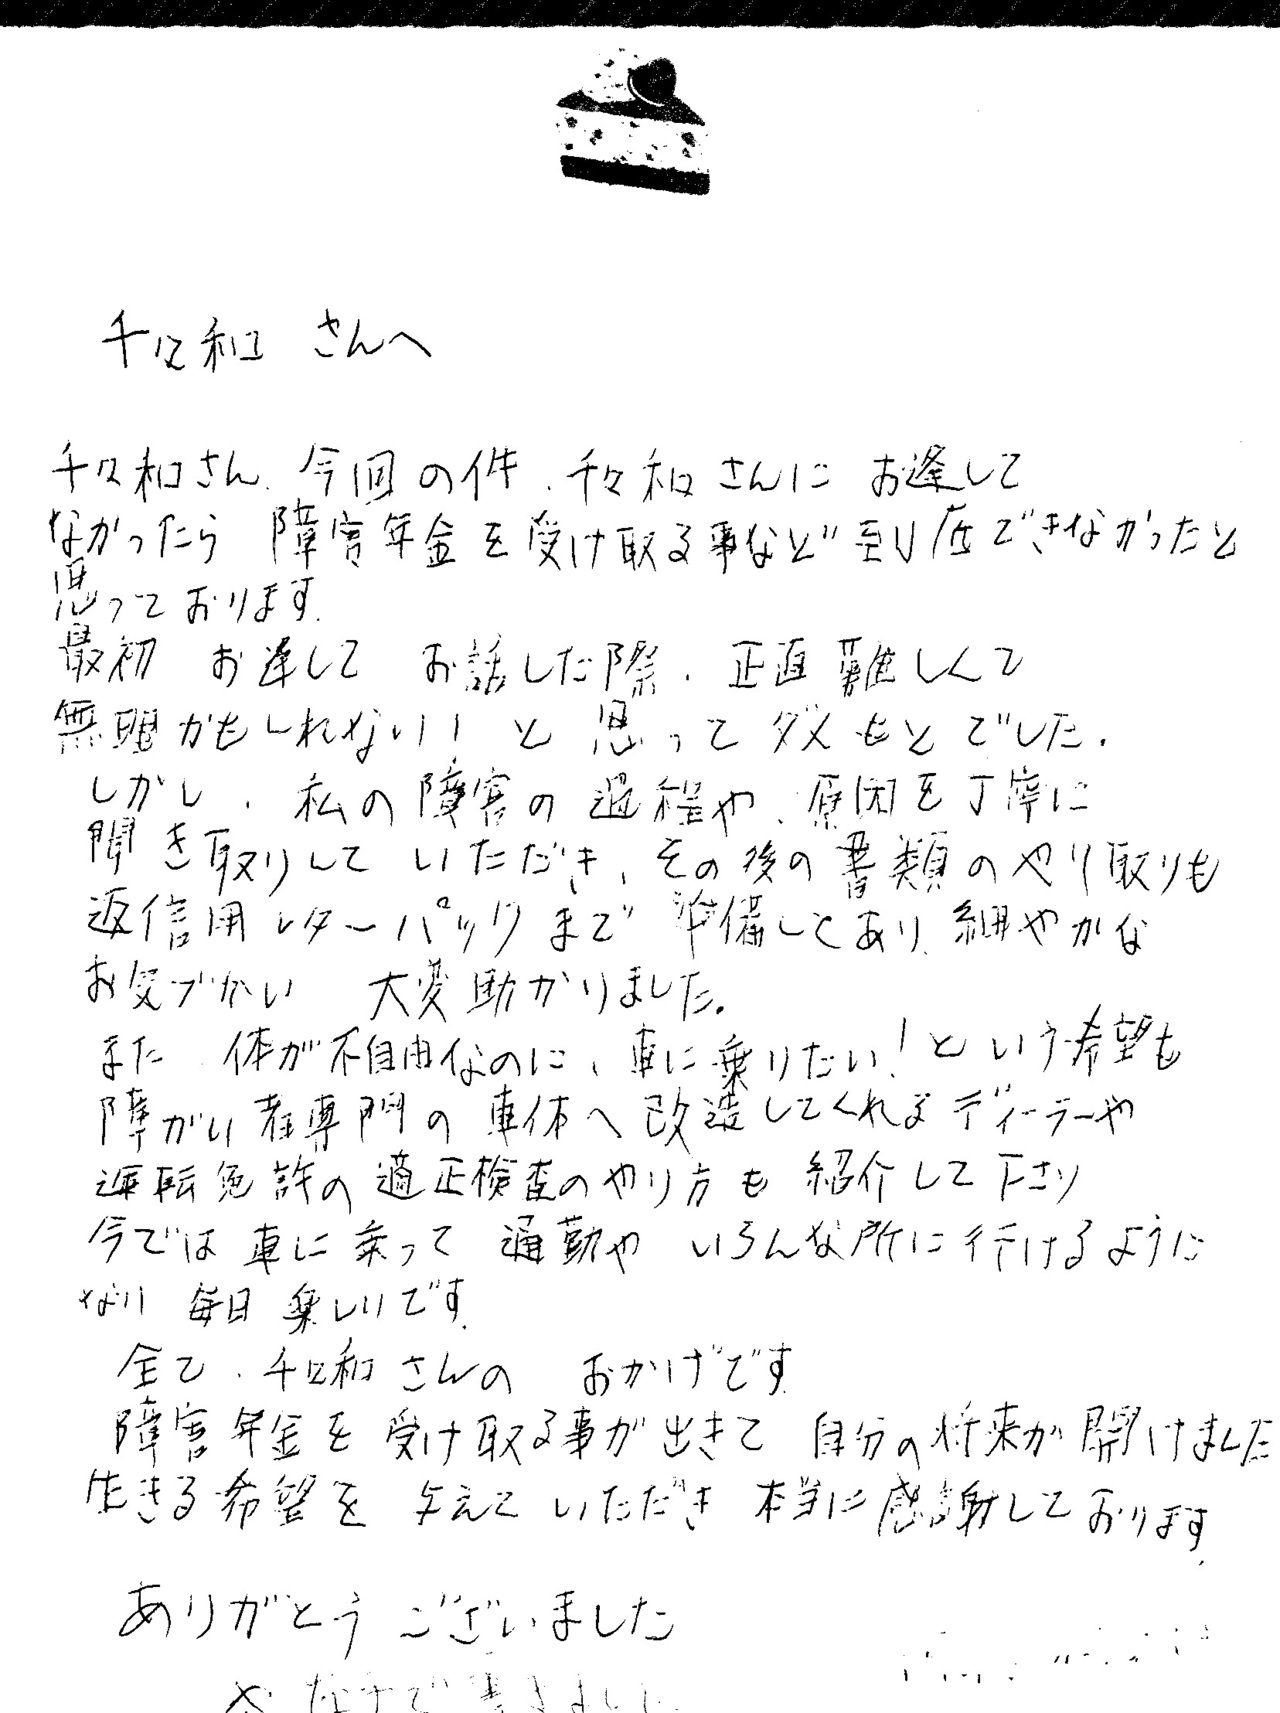 千々和 さんへ
千々和さん、今回の件、千々和さんに お逢して
なかったら 障害年金を受け取る事など到底できなかったと
思っております。
最初 お逢して お話した際、正直難しくて
無理かもしれない！と思ってダメもとでした。
しかし、私の障害の過程や、原因を丁寧に
聞き取りして いただき、その後の書類のやり取りも
返信用レターパックまで 準備してあり、細やかな
お気づかい 大変助かりました。
また、体が不自由なのに、車に乗りたい！という希望も
障がい者専門の車体へ改造してくれるディーラーや
運転免許の適正検査のやり方も 紹介して下さり
今では車に乗って 通勤や いろんな所に行けるように
なり 毎日 楽しいです。
全て、千々和さんの おかげです
障害年金を受け取る事が出きて 自分の将来が開けました
生きる希望を 与えていただき 本当に感謝しております。
ありがとう ございました
で書きました